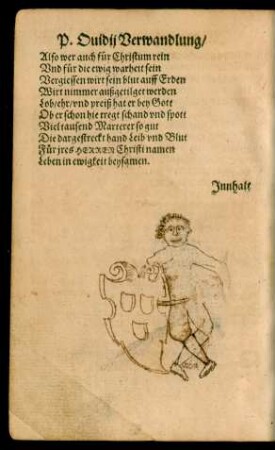 P. Ouidij Verwandlung/
Also wer auch für Christum rein
Vnd für die ewig warheit sein
Vergiessen wirt sein blut auff Erden
Wirt nimmer außgetilget werden
Lob/ehr/vnd preiß hat er bey Gott
Ob er schon hie tregt schand vnd spott
Viel tausend Marterer so gut
Die dargestreckt hand Leib vnd Blut
Für jres HERREN Christi namen
Leben in ewigkeit beysamen.
Jnnhalt